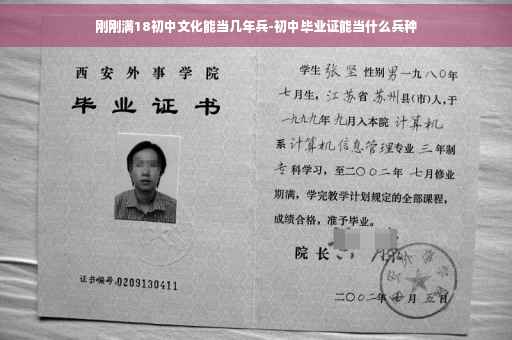 刚刚满18初中文化能当几年兵-初中毕业证能当什么兵种
西安外事学院
毕业证书
证书编号:0209130411
学生 张坚 性别 男 一九八〇年
七月生，江苏省 苏州县(市)人，于
一九九九年 九月入本院 计算机
系 计算机信息管理专业 三 年制
专科学习，至二〇〇二年 七月修业
期满，学完教学计划规定的全部课程，
成绩合格，准予毕业。
院长
二〇〇二年 月 五日